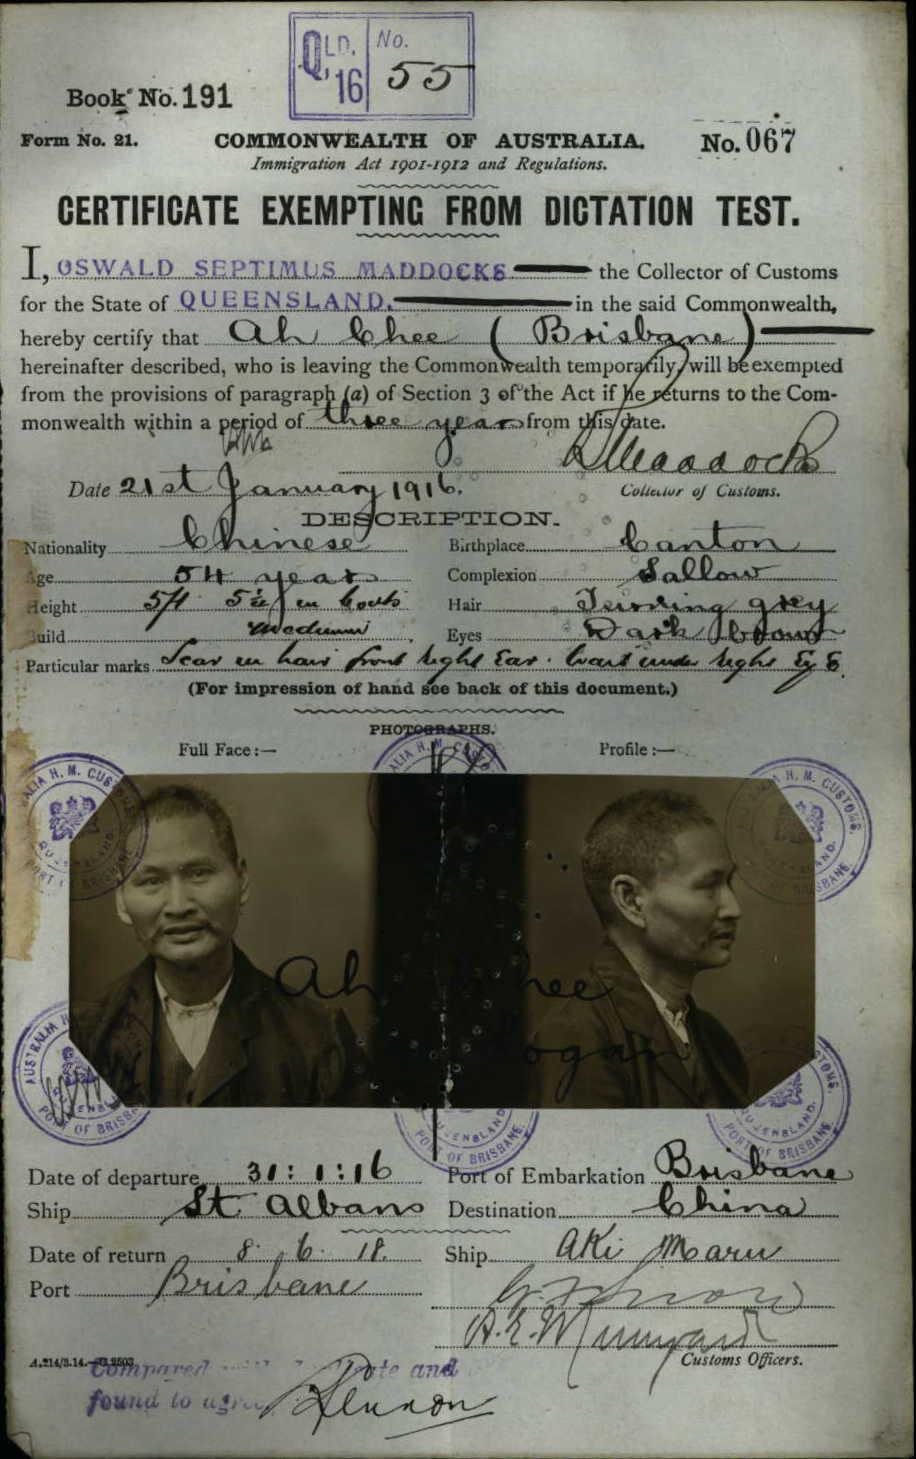 QLD. 16 No. 55
Book No. 191
Form No. 21. COMMONWEALTH OF AUSTRALIA. No. 067
Immigration Act 1901-1912 and Regulations.
CERTIFICATE EXEMPTING FROM DICTATION TEST.
I, OSWALD SEPTIMUS MADDOCKS the Collector of Customs
for the State of QUEENSLAND. in the said Commonwealth,
hereby certify that Ah Chee (Brisbane)
hereinafter described, who is leaving the Commonwealth temporarily, will be exempted
from the provisions of paragraph (a) of Section 3 of the Act if he returns to the Com-
monwealth within a period of three years from this date.
Maddocks
Date 21st January 1916. Collector of Customs.
DESCRIPTION.
Nationality Chinese Birthplace Canton
Age 54 years Complexion Sallow
Height 5ft 5½ in boots Hair Turning grey
Build Medium Eyes Dark brown
Particular marks Scar in hair front right Ear. Wart under right Eye.
(For impression of hand see back of this document.)
PHOTOGRAPHS.
Full Face :— Profile :—
AUSTRALIA H. M. CUSTOMS. QUEENSLAND. PORT OF BRISBANE
Ah Chee
ogan
Date of departure 31:1:16 Port of Embarkation Brisbane
Ship St Albans Destination China
Date of return 8. 6. 18. Ship Aki Maru
Port Brisbane
A. E. W
Customs Officers.
A.214/3.14.
Compared and
found to agree